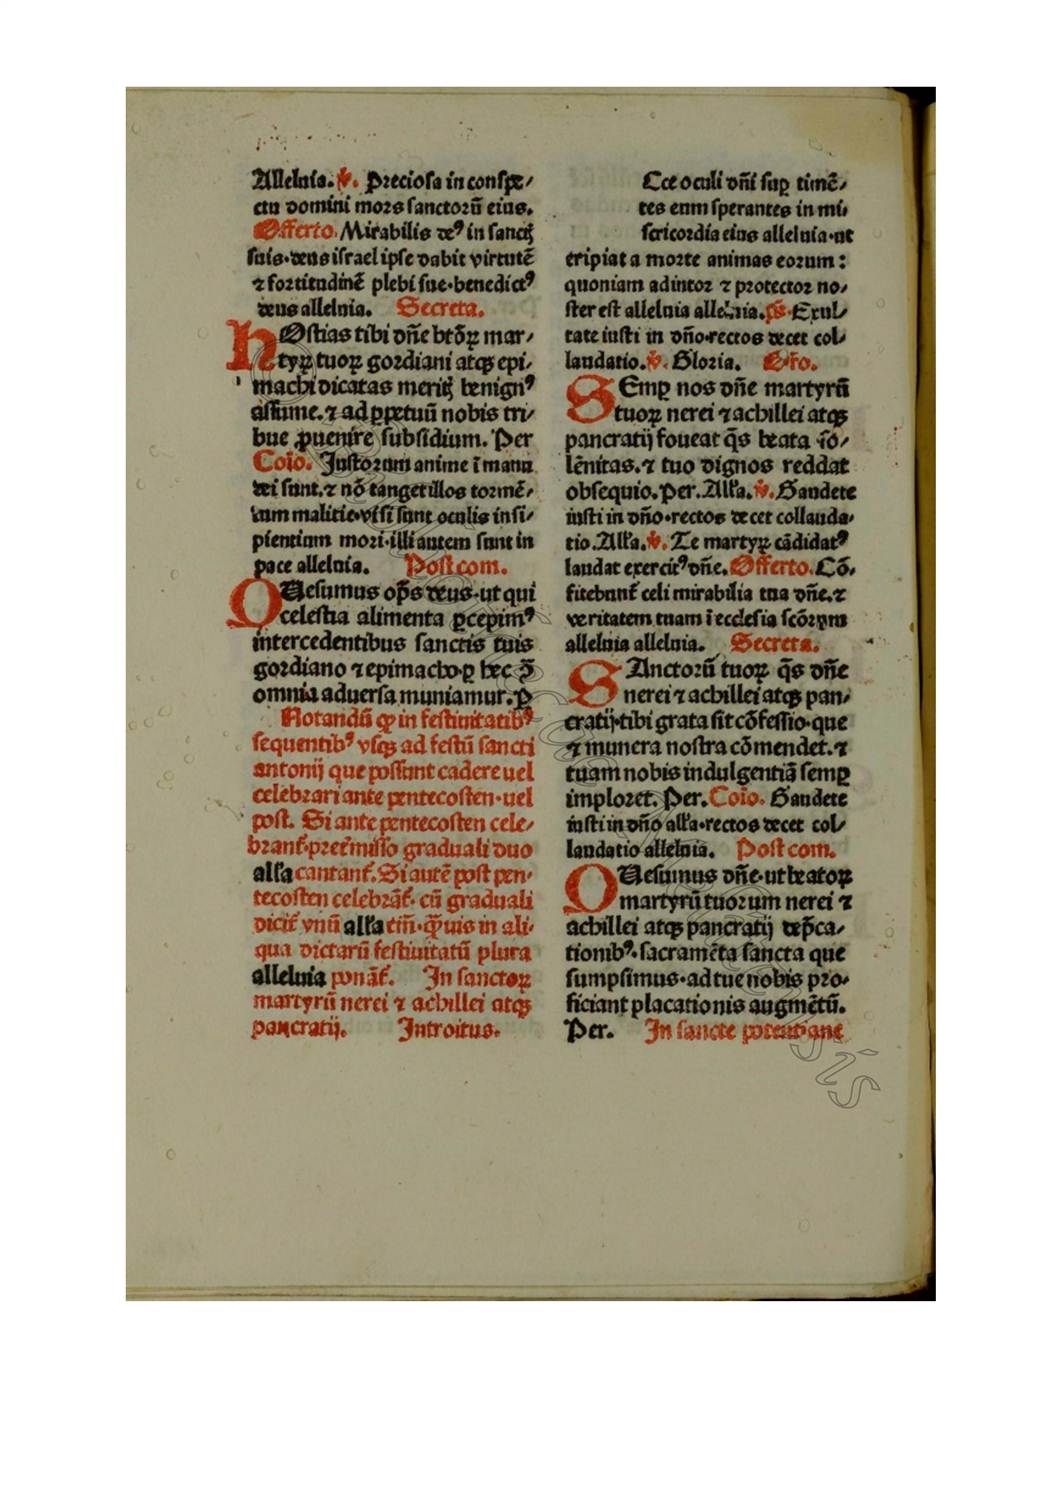 Alleluia. ℣. Preciosa in conspe/
ctu domini mors sanctorū eius.
Offerto. Mirabilis deꝰ in sanctꝭ
suis·deus israel ipse dabit virtutē
⁊ fortitudinē plebi sue·benedictꝰ
deus alleluia. Secreta.
HOstias tibi dn̄e btōꝝ mar/
tyꝝ tuoꝝ gordiani atqꝫ epi/
machi dicatas meritꝭ benignꝰ
assume.⁊ ad ꝑpetuū nobis tri/
bue ꝓuenire subsidium. Per
Coīo. Justorum anime ī manu
dei sunt.⁊ nō tanget illos tormē/
tum malitie·visi sunt oculis insi/
pientium mori·illi autem sunt in
pace alleluia. Postcom.
QUesumus op̄s deus·ut qui
celestia alimenta ꝑcepimꝰ
intercedentibus sanctis tuis
gordiano ⁊ epimacho·ꝑ hec ↄ̄
omnia aduersa muniamur.ꝑ
Notandū ꝙ in festiuitatibꝰ
sequentibꝰ vsqꝫ ad festū sancti
antonij que possunt cadere uel
celebrari ante pentecosten·uel
post. Si ante pentecosten cele/
brant᷑·pret᷑misso graduali duo
all'a cantant᷑. Si autē post pen·
tecosten celebrāt᷑· cū graduali
dicit᷑ vnū all'a tm̄·Q̄uis in ali·
qua dictarū festiuitatū plura
alleluia ponāt᷑. In sanctoꝝ
martyrū nerei ⁊ achillei atqꝫ
pancratij. Introitus.
Cce oculi dn̄i suꝑ timē/
tes eum sperantes in mi/
sericordia eius alleluia·ut
eripiat a morte animas eorum:
quoniam adiutor ⁊ protector no/
ster est alleluia alleluia.ps̄·Exul/
tate iusti in dn̄o·rectos decet col/
laudatio.℣. Gloria. Or̄o.
SEmꝑ nos dn̄e martyrū
tuoꝝ nerei ⁊ achillei atqꝫ
pancratij foueat q̄s beata so/
lēnitas.⁊ tuo dignos reddat
obsequio.Per.All'a.℣.Gaudete
iusti in dn̄o·rectos decet collauda·
tio.All'a.℣. Te martyꝝ cādidatꝰ
laudat exercitꝰ dn̄e.Offerto.Cō/
fitebunt᷑ celi mirabilia tua dn̄e.⁊
veritatem tuam ī ecclesia scōrum
alleluia alleluia. Secreta.
SAnctorū tuoꝝ q̄s dn̄e
nerei ⁊ achillei atqꝫ pan/
cratij·tibi grata sit cōfessio·que
⁊ munera nostra cōmendet.⁊
tuam nobis indulgentiā semꝑ
imploret. Per.Coīo. Gaudete
iusti in dn̄o all'a·rectos decet col/
laudatio alleluia. Postcom.
QUesumus dn̄e·ut beatoꝝ
martyrū tuorum nerei ⁊
achillei atqꝫ pancratij dep̄ca/
tionibꝰ·sacramēta sancta que
sumpsimus·ad tue nobis pro/
ficiant placationis augmētū.
Per. In sancte potentiane